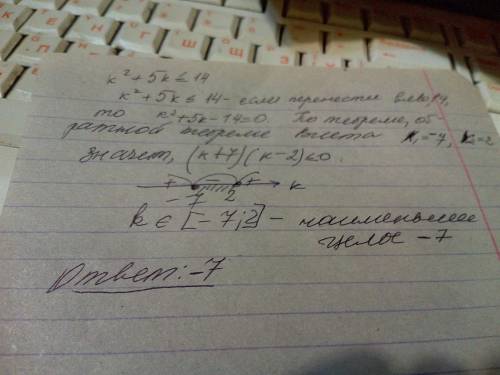 k² + 5k ≤ 14
k² + 5k ≤ 14 - если перенести влево 14,
то k² + 5k - 14 = 0. По теореме, об
ратной теореме Виета k₁ = -7, k₂ = 2
значет, (k+7)(k-2) ≤ 0.
+ - + k
-7 2
k ∈ [-7; 2] - наименьшее
целое -7
Ответ: -7
Е Н Г Ш